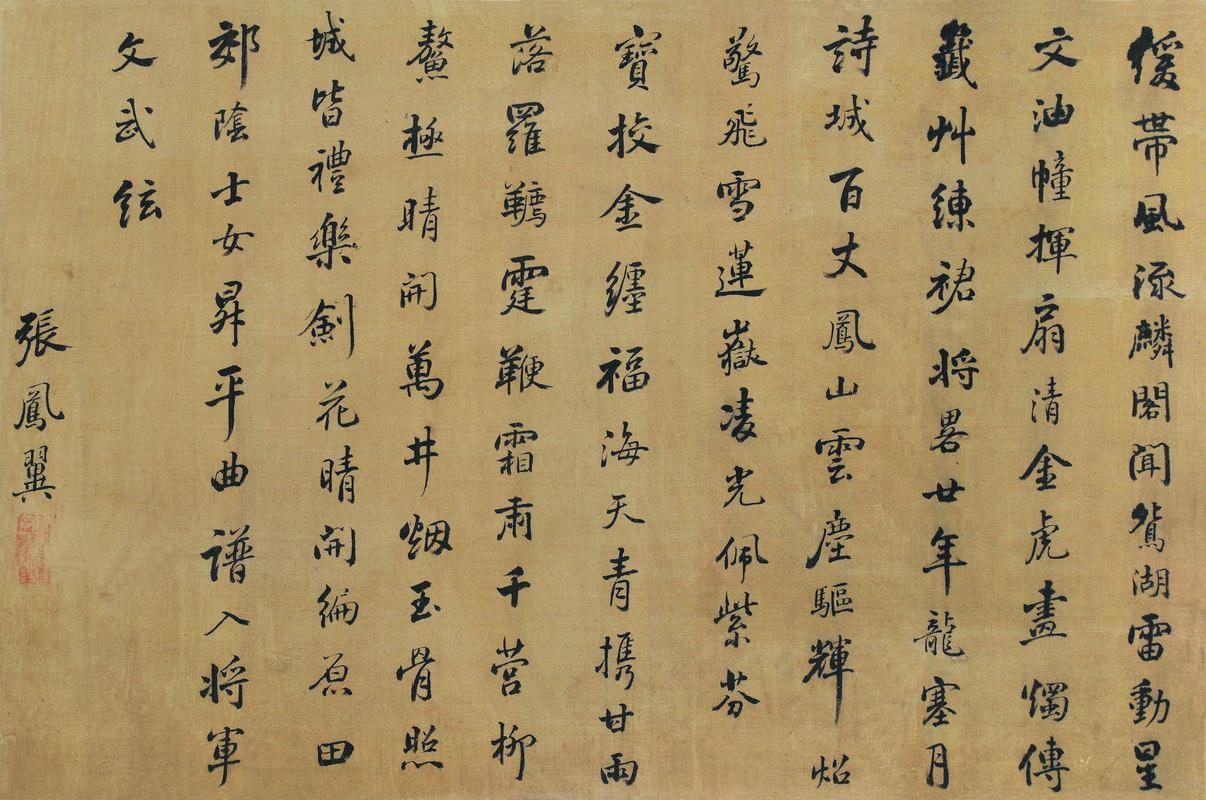 緩帶風流麟閣聞鴛湖雷動星
文油幢揮扇清金虎畫燭傳
籤艸練裙將畧廿年龍塞月
詩城百丈鳳山雲塵驅輝焰
驚飛雪蓮嶽凌光佩紫芬
寶校金纏福海天青攜甘雨
落羅韉霆鞭霜肅千營柳
鰲極晴開萬井烟玉骨照
城皆禮樂劍花晴開徧原田
郊陰士女昇平曲譜入將軍
文武絃
張鳳翼